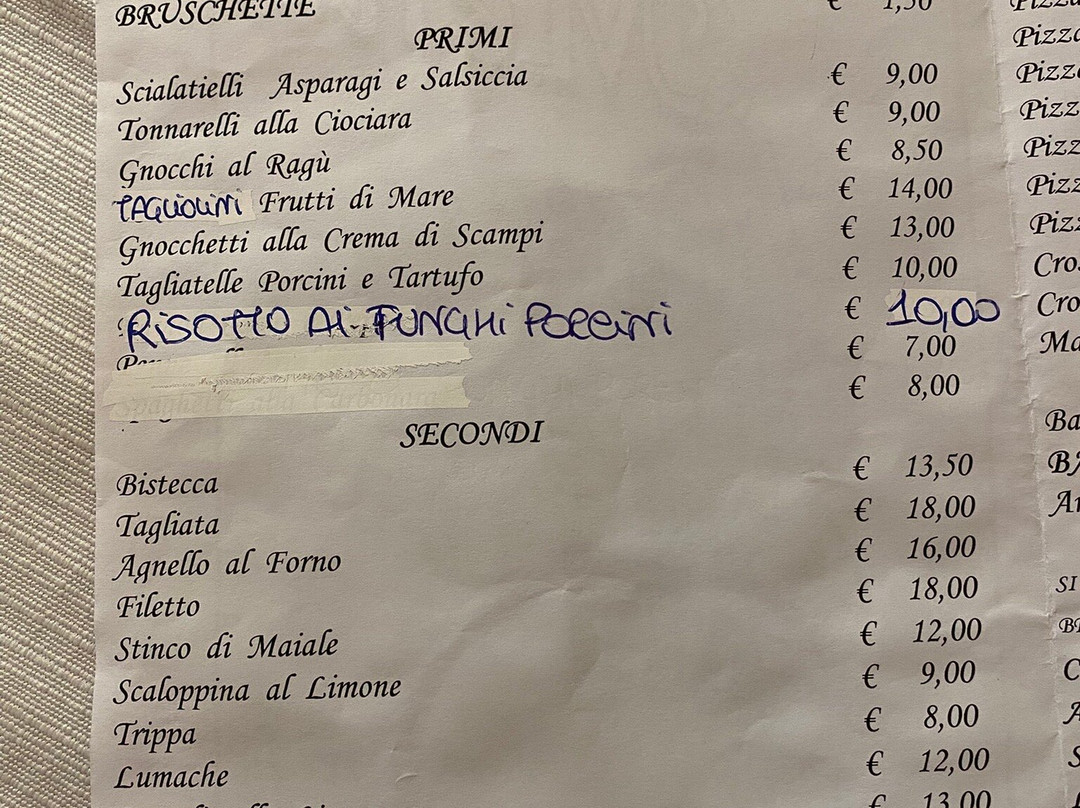 BRUSCHETTE € 1,50
PRIMI
Scialatielli Asparagi e Salsiccia € 9,00
Tonnarelli alla Ciociara € 9,00
Gnocchi al Ragù € 8,50
TAGLIOLINI Frutti di Mare € 14,00
Gnocchetti alla Crema di Scampi € 13,00
Tagliatelle Porcini e Tartufo € 10,00
RISOTTO AI FUNGHI PORCINI € 10,00
€ 7,00
Spaghetti alla Carbonara € 8,00
SECONDI
Bistecca € 13,50
Tagliata € 18,00
Agnello al Forno € 16,00
Filetto € 18,00
Stinco di Maiale € 12,00
Scaloppina al Limone € 9,00
Trippa € 8,00
Lumache € 12,00
€ 13,00